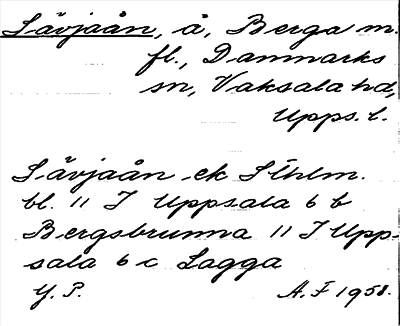 Sävjaån, å, Berga m.
fl., Danmarks
sn, Vaksala hd,
Upps. l.
Sävjaån ek Sthlm.
bl. 11 I Uppsala 6 b
Bergsbrunna 11 I Upp-
sala 6 c Lagga
Y. P.
A. F 1958.